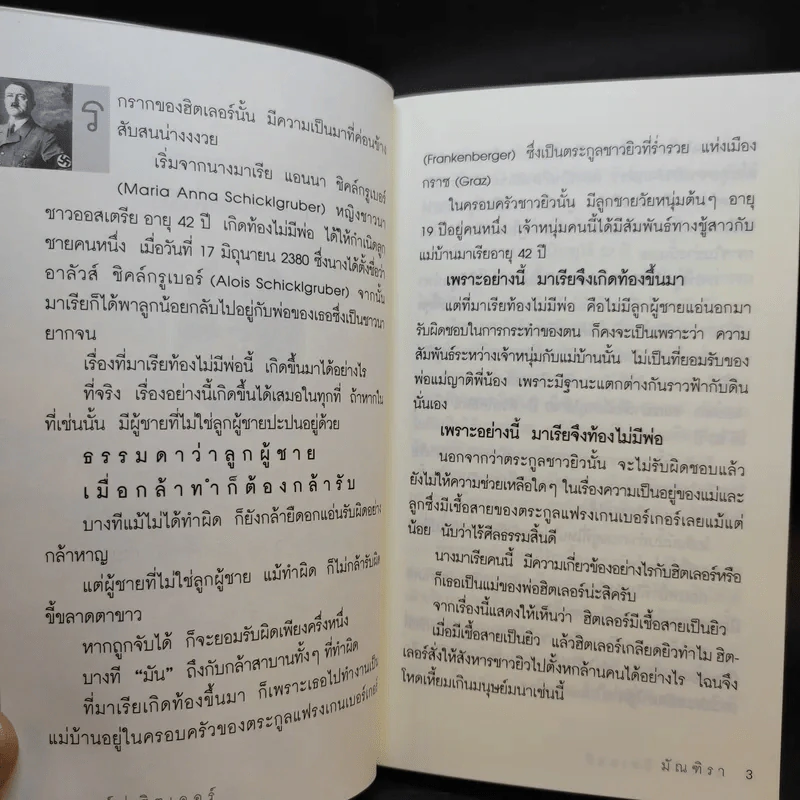 รกรากของฮิตเลอร์นั้น มีความเป็นมาที่ค่อนข้าง
สับสนน่างงงวย
เริ่มจากนางมาเรีย แอนนา ชิคล์กรูเบอร์
(Maria Anna Schicklgruber) หญิงชาวนา
ชาวออสเตรีย อายุ 42 ปี เกิดท้องไม่มีพ่อ ได้ให้กำเนิดลูก
ชายคนหนึ่ง เมื่อวันที่ 17 มิถุนายน 2380 ซึ่งนางได้ตั้งชื่อว่า
อาลัวส์ ชิคล์กรูเบอร์ (Alois Schicklgruber) จากนั้น
มาเรียก็ได้พาลูกน้อยกลับไปอยู่กับพ่อของเธอซึ่งเป็นชาวนา
ยากจน
เรื่องที่มาเรียท้องไม่มีพ่อนี้ เกิดขึ้นมาได้อย่างไร
ที่จริง เรื่องอย่างนี้เกิดขึ้นได้เสมอในทุกที่ ถ้าหากใน
ที่เช่นนั้น มีผู้ชายที่ไม่ใช่ลูกผู้ชายปะปนอยู่ด้วย
ธรรมดาว่าลูกผู้ชาย
เมื่อกล้าทำก็ต้องกล้ารับ
บางทีแม้ไม่ได้ทำผิด ก็ยังกล้ายืดอกแอ่นรับผิดอย่าง
กล้าหาญ
แต่ผู้ชายที่ไม่ใช่ลูกผู้ชาย แม้ทำผิด ก็ไม่กล้ารับผิด
ขี้ขลาดตาขาว
หากถูกจับได้ ก็จะยอมรับผิดเพียงครึ่งหนึ่ง
บางที "มัน" ถึงกับกล้าสาบานทั้งๆ ที่ทำผิด
ที่มาเรียเกิดท้องขึ้นมา ก็เพราะเธอไปทำงานเป็น
แม่บ้านอยู่ในครอบครัวของตระกูลแฟรงเกนเบอร์เกอร์
(Frankenberger) ซึ่งเป็นตระกูลชาวยิวที่ร่ำรวย แห่งเมือง
กราซ (Graz)
ในครอบครัวชาวยิวนั้น มีลูกชายวัยหนุ่มต้นๆ อายุ
19 ปีอยู่คนหนึ่ง เจ้าหนุ่มคนนี้ได้มีสัมพันธ์ทางชู้สาวกับ
แม่บ้านมาเรียอายุ 42 ปี
เพราะอย่างนี้ มาเรียจึงเกิดท้องขึ้นมา
แต่ที่มาเรียท้องไม่มีพ่อ คือไม่มีลูกผู้ชายแอ่นอกมา
รับผิดชอบในการกระทำของตน ก็คงจะเป็นเพราะว่า ความ
สัมพันธ์ระหว่างเจ้าหนุ่มกับแม่บ้านนั้น ไม่เป็นที่ยอมรับของ
พ่อแม่ญาติพี่น้อง เพราะมีฐานะแตกต่างกันราวฟ้ากับดิน
นั่นเอง
เพราะอย่างนี้ มาเรียจึงท้องไม่มีพ่อ
นอกจากว่าตระกูลชาวยิวนั้น จะไม่รับผิดชอบแล้ว
ยังไม่ให้ความช่วยเหลือใดๆ ในเรื่องความเป็นอยู่ของแม่และ
ลูกซึ่งมีเชื้อสายของตระกูลแฟรงเกนเบอร์เกอร์เลยแม้แต่
น้อย นับว่าไร้ศีลธรรมสิ้นดี
นางมาเรียคนนี้ มีความเกี่ยวข้องอย่างไรกับฮิตเลอร์หรือ
ก็เธอเป็นแม่ของพ่อฮิตเลอร์น่ะสิครับ
จากเรื่องนี้แสดงให้เห็นว่า ฮิตเลอร์มีเชื้อสายเป็นยิว
เมื่อมีเชื้อสายเป็นยิว แล้วฮิตเลอร์เกลียดยิวทำไม ฮิต-
เลอร์สั่งให้สังหารชาวยิวไปตั้งหกล้านคนได้อย่างไร ไฉนจึง
โหดเหี้ยมเกินมนุษย์มนาเช่นนี้
มัณฑิรา 3